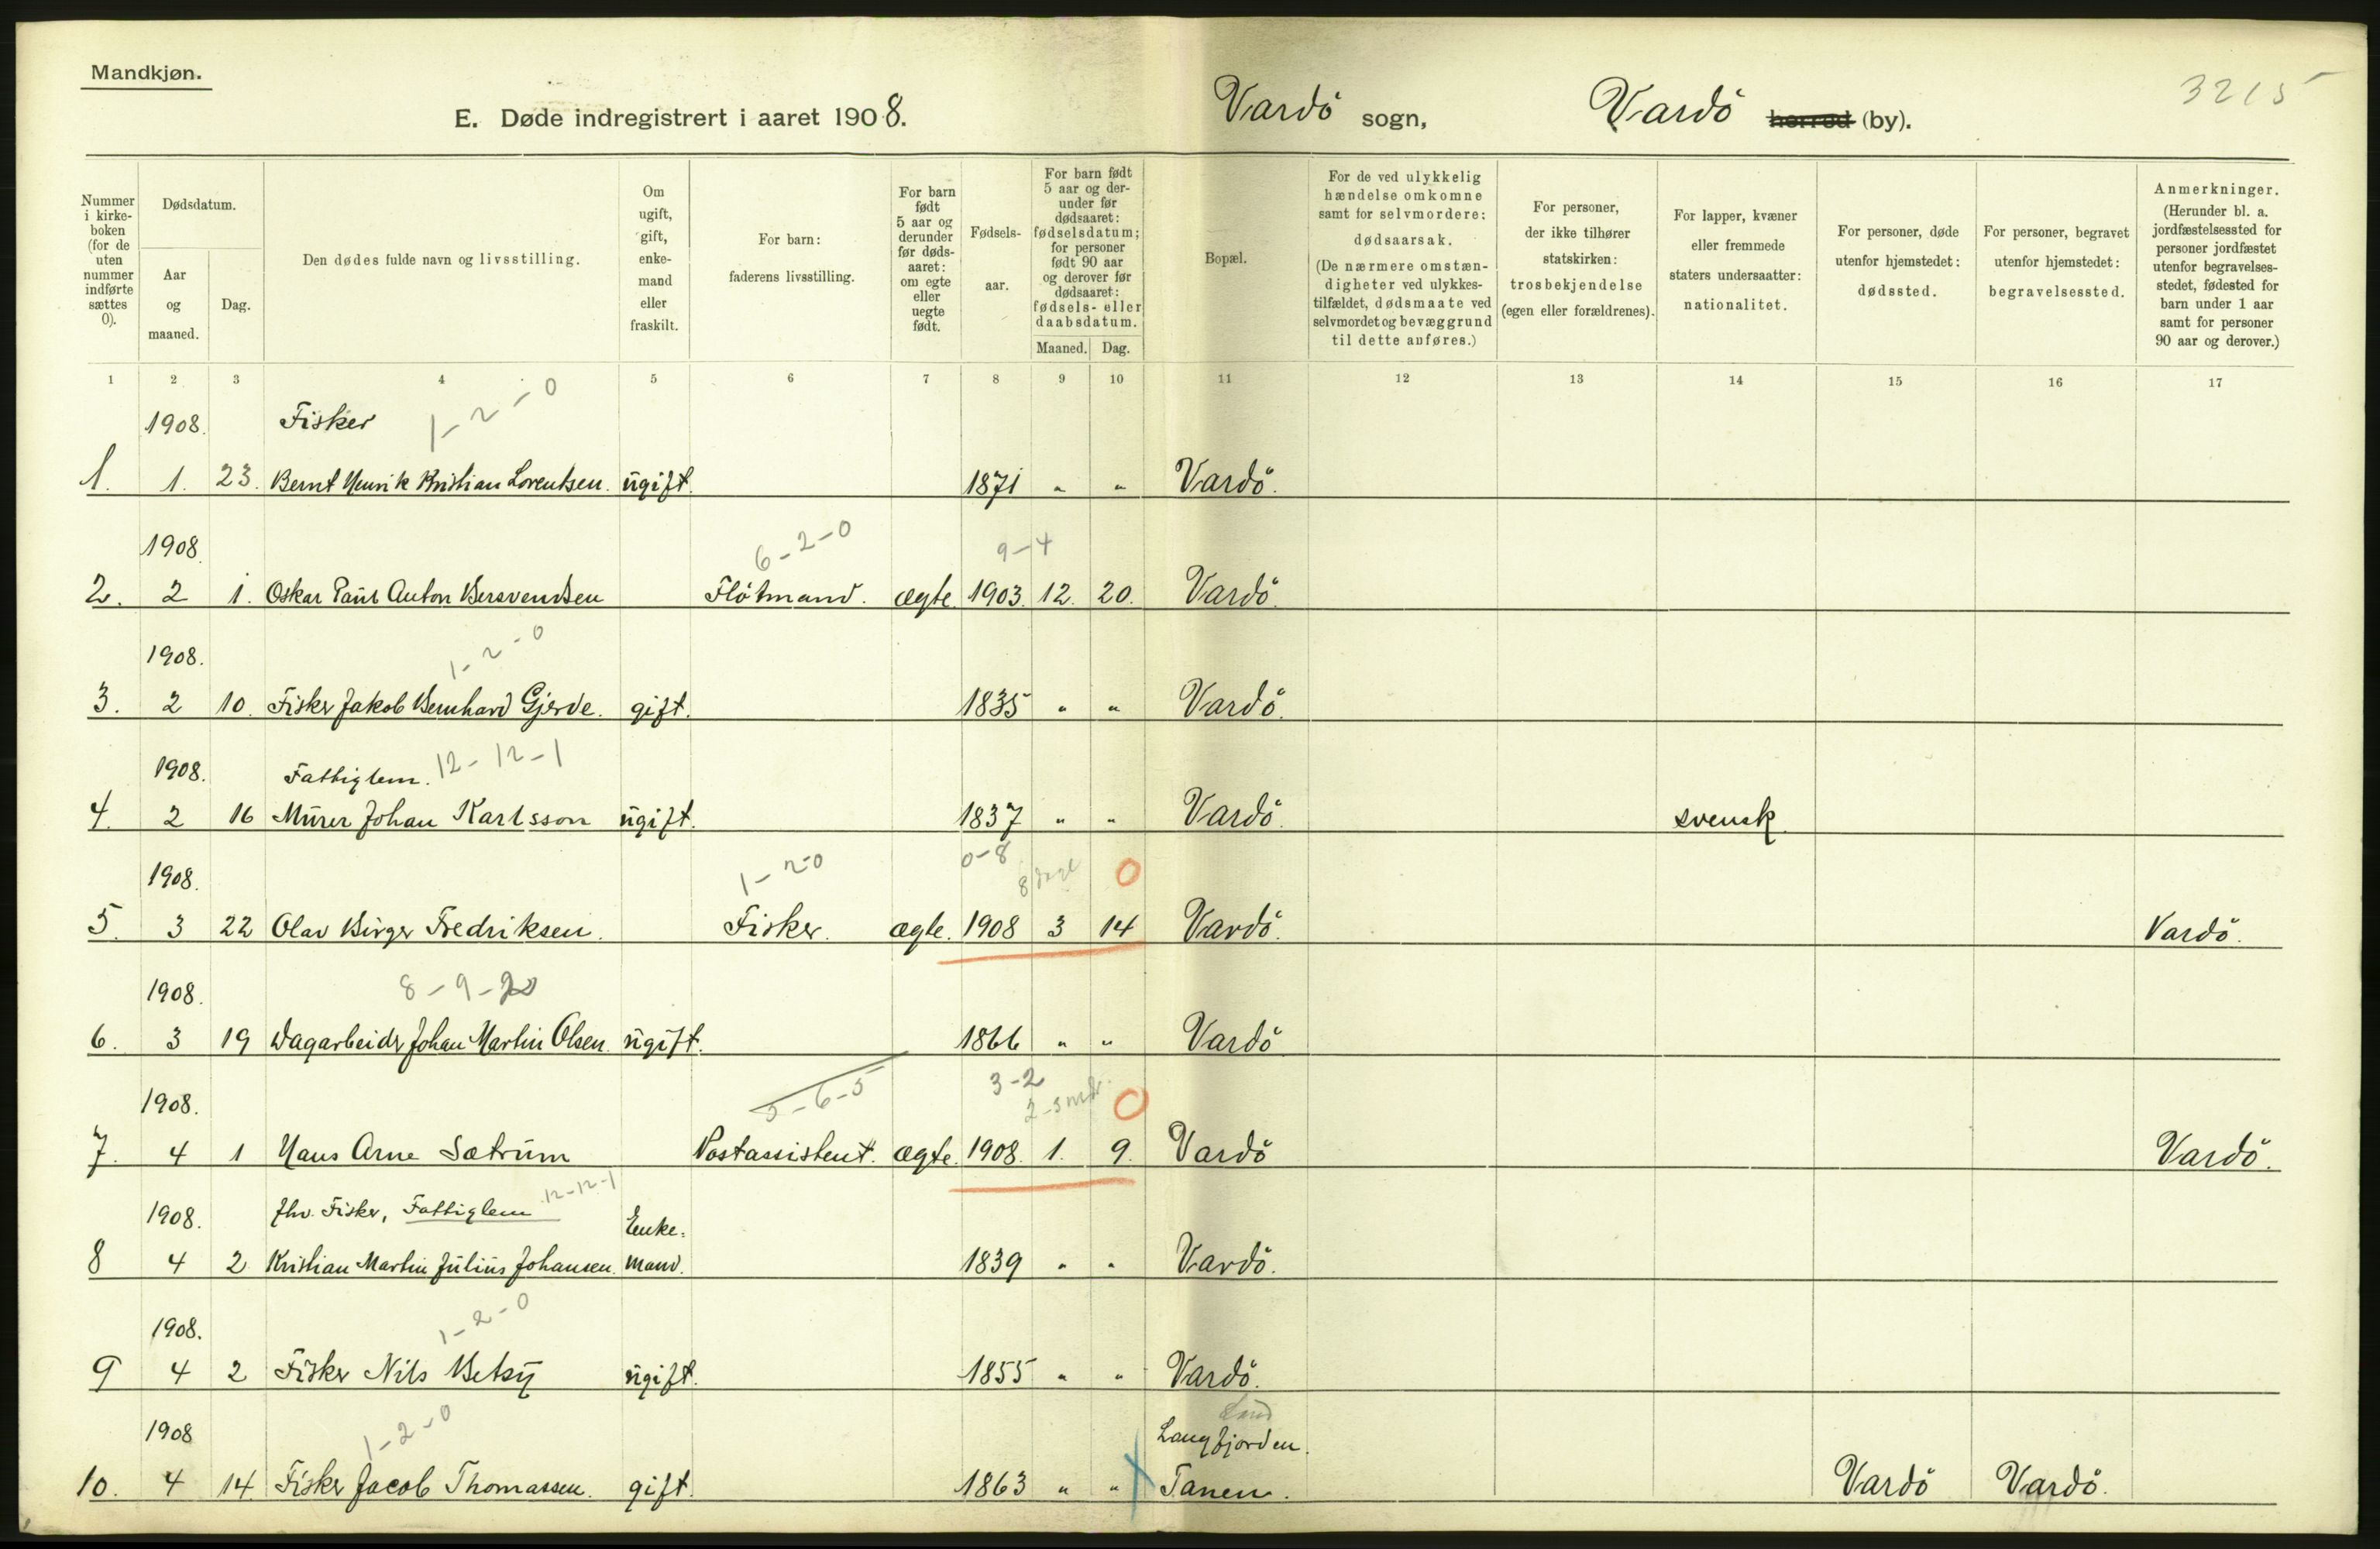 Mandkjøn.
E. Døde indregistrert i aaret 1908.
Vardö sogn, Vardö herred (by).
3215
Nummer i kirke-boken (for de uten nummer indførte sættes 0).
Dødsdatum.
Aar og maaned.
Dag.
Den dødes fulde navn og livsstilling.
Om ugift, gift, enke-mand eller fraskilt.
For barn: faderens livsstilling.
For barn født 5 aar og derunder før døds-aaret: om egte eller uegte født.
Fødsels-aar.
For barn født 5 aar og der-under før dødsaaret: fødselsdatum; for personer født 90 aar og derover før dødsaaret: fødsels- eller daabsdatum.
Maaned. Dag.
Bopæl.
For de ved ulykkelig hændelse omkomne samt for selvmordere: dødsaarsak. (De nærmere omstæn-digheter ved ulykkes-tilfældet, dødsmaate ved selvmordet og bevæggrund til dette anføres.)
For personer, der ikke tilhører statskirken: trosbekjendelse (egen eller forældrenes).
For lapper, kvæner eller fremmede staters undersaatter: nationalitet.
For personer, døde utenfor hjemstedet: dødssted.
For personer, begravet utenfor hjemstedet: begravelsessted.
Anmerkninger. (Herunder bl. a. jordfæstelsessted for personer jordfæstet utenfor begravelses-stedet, fødested for barn under 1 aar samt for personer 90 aar og derover.)
1 2 3 4 5 6 7 8 9 10 11 12 13 14 15 16 17
1908. Fisker 1-2-0
1. 1. 23. Bernt Henrik Kristian Lorentsen. ugift. 1871 " " Vardö.
1908. 6-2-0 9-4
2. 2 1. Oskar Paul Anton Bersvendsen Flötmand. ægte. 1903. 12. 20. Vardö.
1908. 1-2-0
3. 2 10. Fisker Jakob Bernhard Gjerde. gift. 1835 " " Vardö.
1908. Fattiglem. 12-12-1
4. 2 16 Murer Johan Karlsson ugift. 1837 " " Vardö. svensk.
1908. 1-2-0 0-8 8 dage 0
5. 3 22 Olav Birger Fredriksen. Fisker. ægte. 1908 3 14 Vardö. Vardö.
1908. 8-9-20
6. 3 19 Dagarbeider Johan Martin Olsen. ugift. 1866 " " Vardö
1908. 5-6-5 3-2 2-3 mdr. 0
7. 4 1 Hans Arne Sætrum Postassistent. ægte. 1908. 1. 9. Vardö Vardö.
1908. fhv. Fisker, Fattiglem 12-12-1 Enke-
8 4 2 Kristian Martin Julius Johansen. mand. 1839 " " Vardö.
1908. 1-2-0
9 4 2 Fisker Nils Betsy ugift. 1855 " " Vardö.
1908 1-2-0 Land Langfjorden.
10. 4 14. Fisker Jacob Thomassen. gift. 1863 " " Tanen. Vardö Vardö.